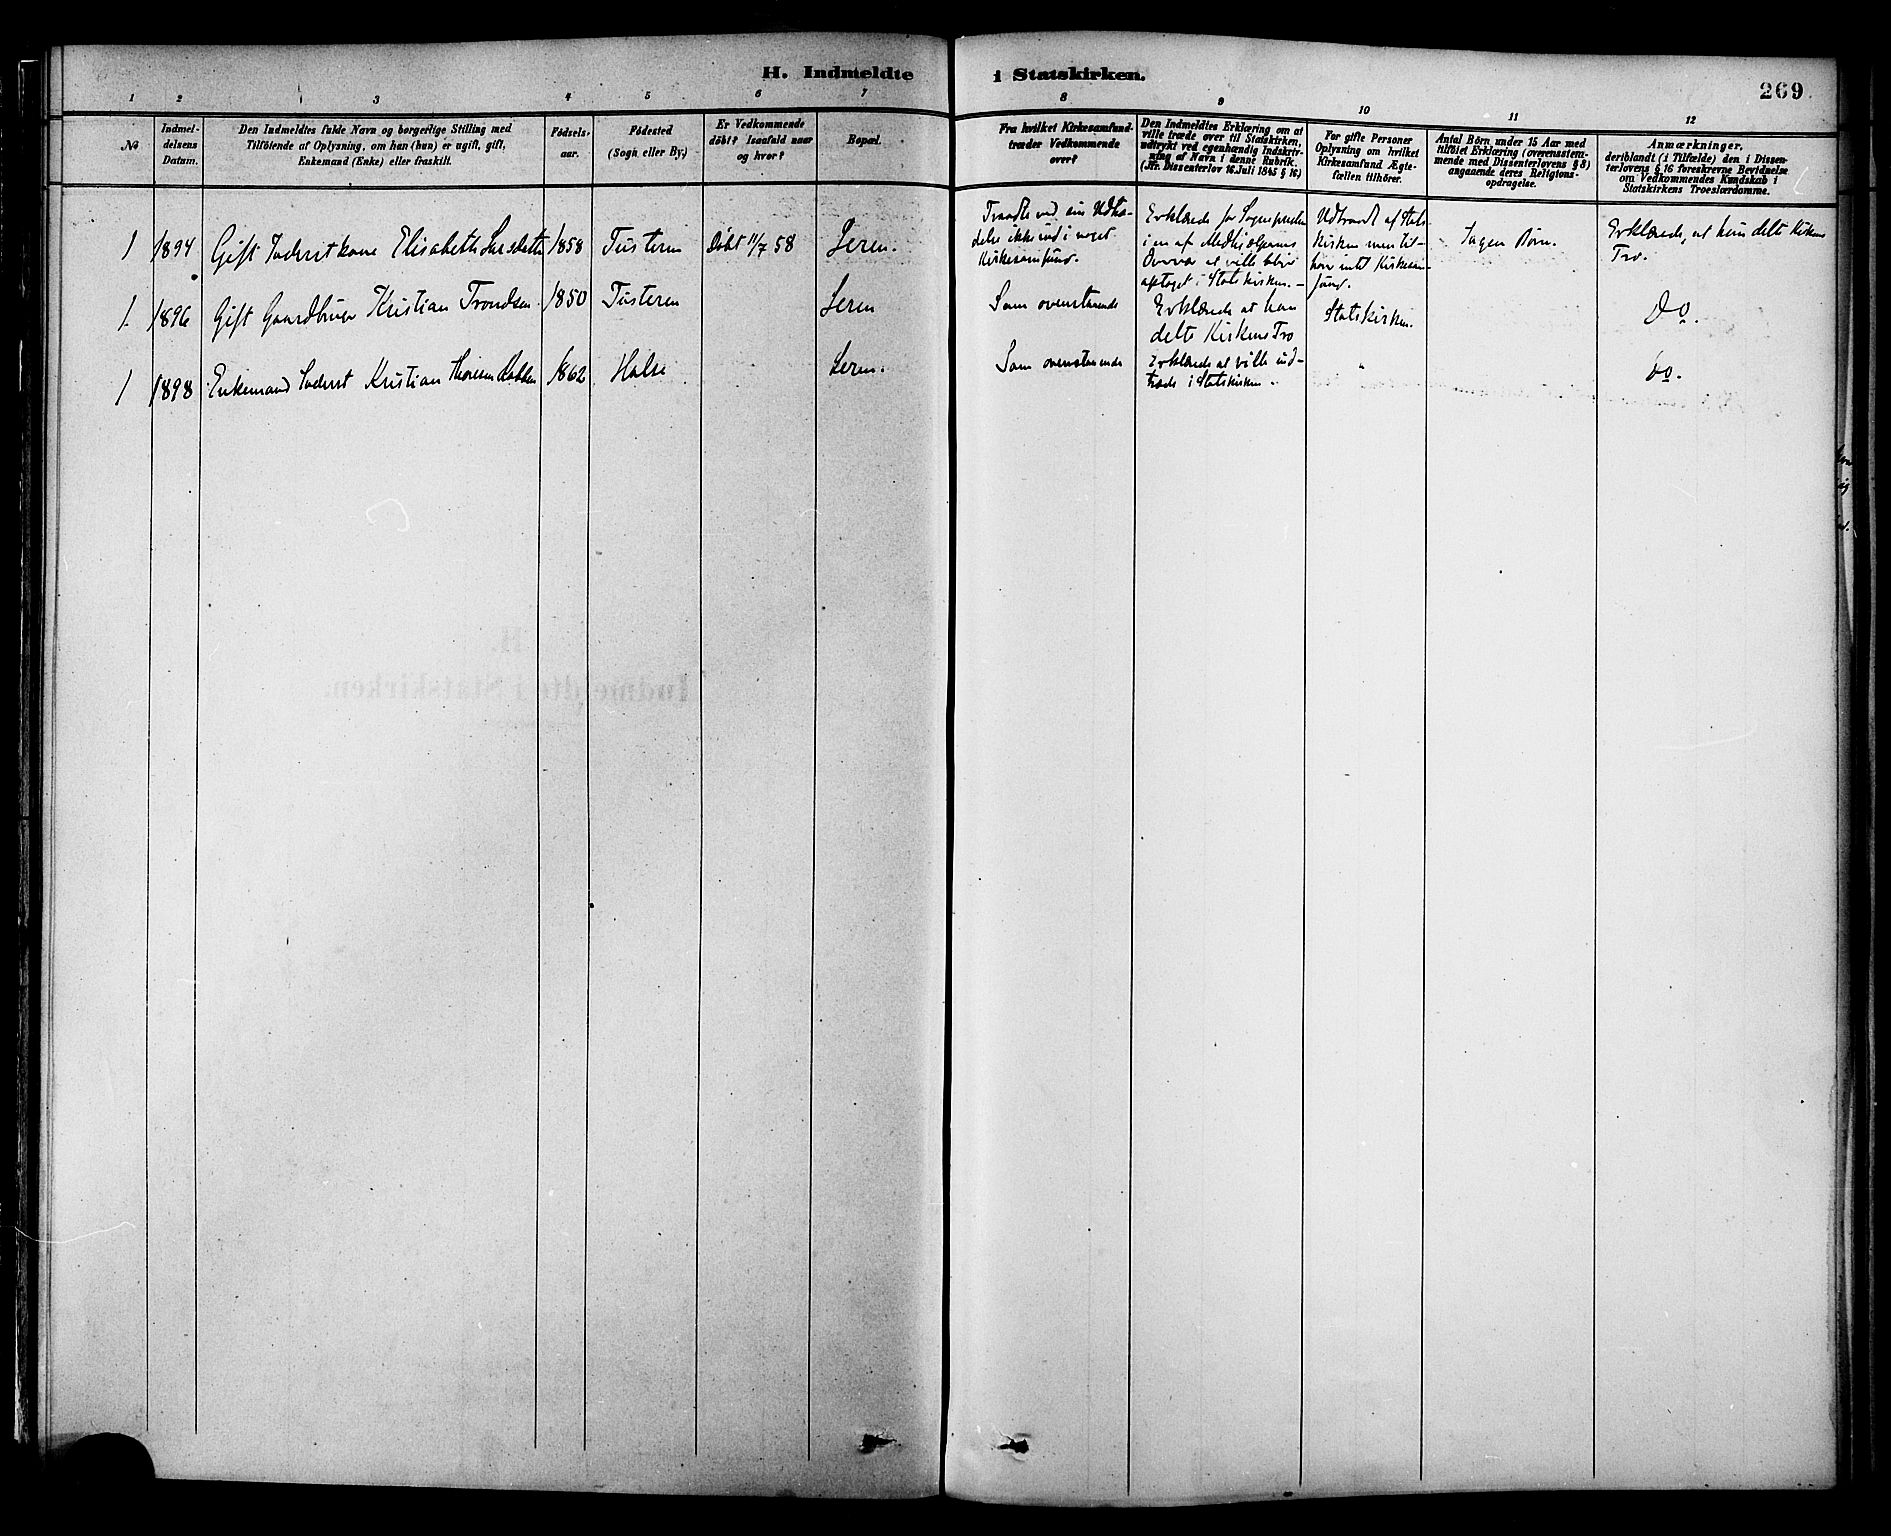 H. Indmeldte i Statskirken.
269
1 2 3 4 5 6 7 8 9 10 11 12
No
Indmel-
delsens
Datum.
Den Indmeldtes fulde Navn og borgerlige Stilling med
Tilföiende af Oplysning, om han (hun) er ugift, gift,
Enkemand (Enke) eller fraskilt.
Födsels-
aar.
Födested
(Sogn eller By.)
Er Vedkommende
döbt? Isaafald naar
og hvor?
Bopæl.
Fra hvilket Kirkesamfund
træder Vedkommende
over?
Den Indmeldtes Erklæring om at
ville træde over til Statskirken,
udtrykt ved egenhændig Indskriv-
ning af Navn i denne Rubrik.
(Jfr. Dissenterlov 16 Juli 1845 § 16)
For gifte Personer
Oplysning om hvilket
Kirkesamfund Ægte-
fællen tilhörer.
Antal Börn under 15 Aar med
tilföiet Erklæring (overensstem-
mende med Dissenterlovens § 8)
angaaende deres Religions-
opdragelse.
Anmærkninger,
deriblandt (i Tilfælde) den i Dissen-
terlovens § 16 foreskrevne Bevidnelse
om Vedkommendes Kundskab i
Statskirkens Troeslærdomme.
1 1894 Gift Inderstkone Elisabeth Larsdatter 1858 Tusteren Döbt 11/7 58 Leren.
Traadte ved sin Udtræ-
delse ikke ind i noget
Kirkesamfund.
Erklærede for Sognepræsten
i en af Medhjælpernes
Overvær at ville blive
optaget i Statskirken. -
Udtraadt af Stats
kirken men til-
hörer intet Kirkesam-
fund.
Ingen Börn.
Erklærede, at hun delte Kirkens
Tro.
1 1896 Gift Gaardbruger Kristian Trondsen 1850 Tusteren Leren
Som ovenstaaende
Erklærede at han
delte Kirkens Tro
Statskirken.
Do.
1 1898 Enkemand Inderst Kristian Thoresen 1862 Halse Leren.
Som ovenstaaende
Erklærede at ville ind-
træde i Statskirken.
"
Do.